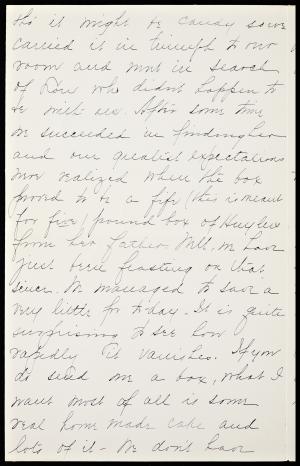 tho it might be candy so we
carried it in triumph to our
room and went in search
of Dow who didn't happen to
be with us. After some time
we succeeded in finding her
and our greatest expectations
were realized where the box
proved to be a fife (this is meant
for five) pound box of Huylers
from her father. Well, we have
just been feasting on that
since. We managed to save a
very little for today. It is quite
surprising to see how
rapidly it vanishes. If you
do send me a box, what I
want most of all is some
real home made cake and
lots of it - We don't have